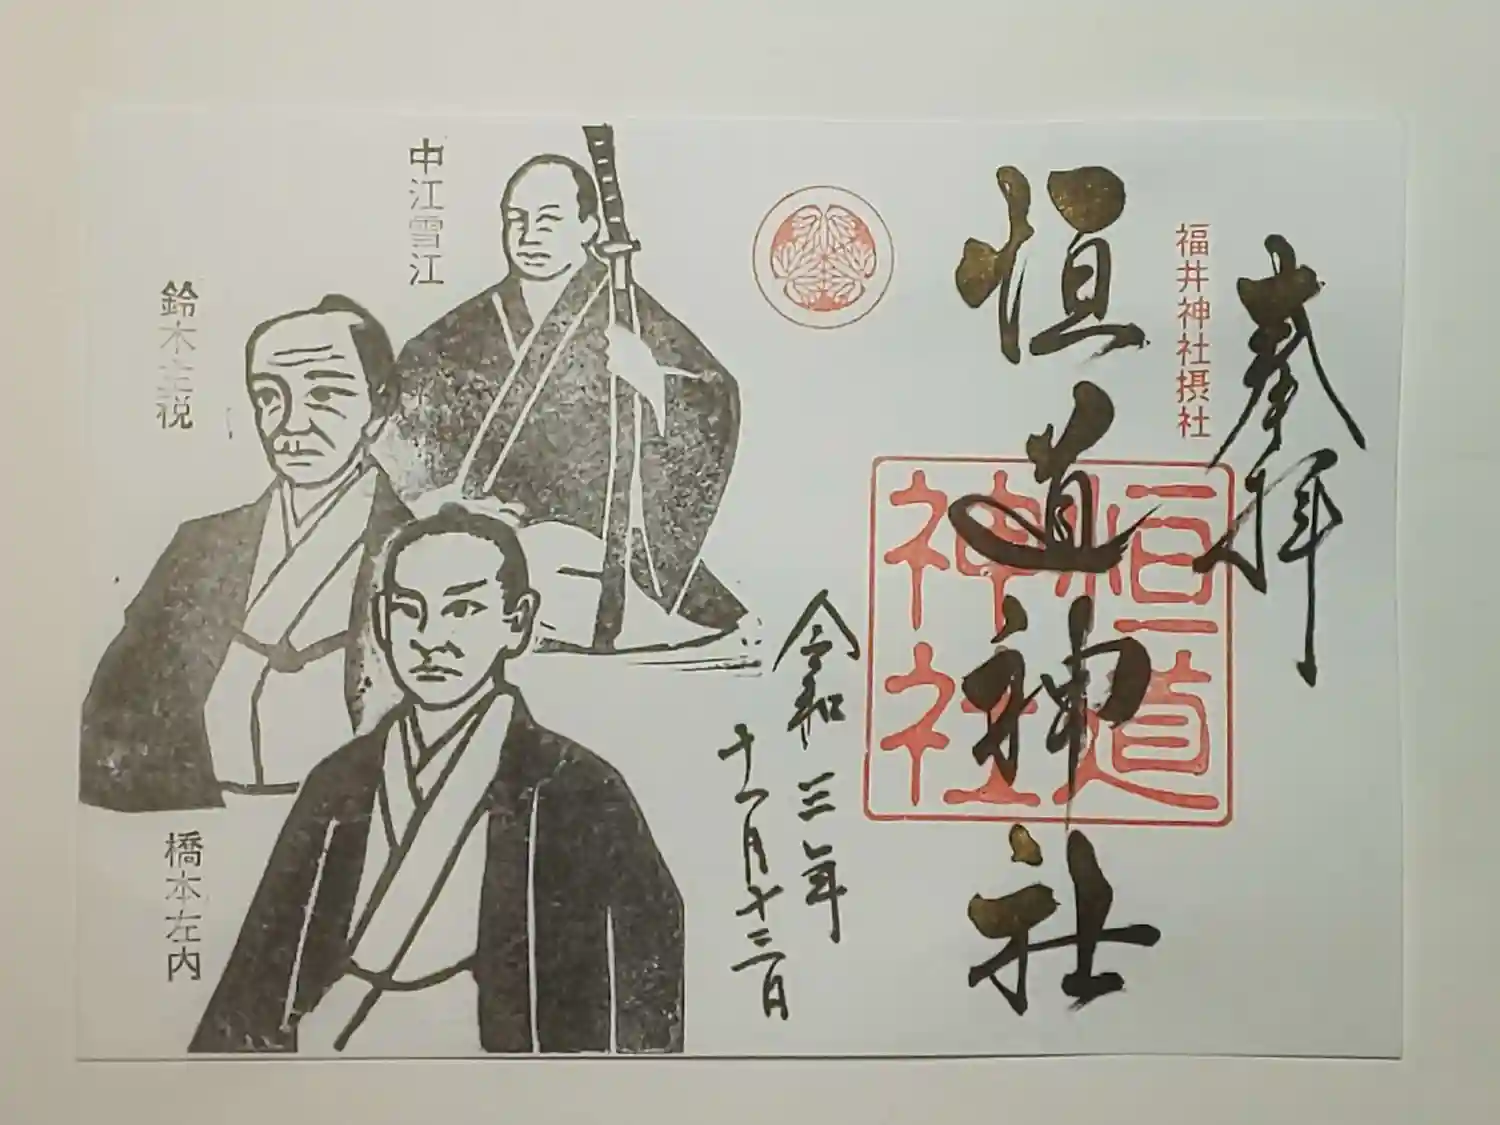 奉拝
福井神社摂社
恒道神社
恒道
神社
令和三年
十一月十三日
中江雪江
鈴木主税
橋本左内